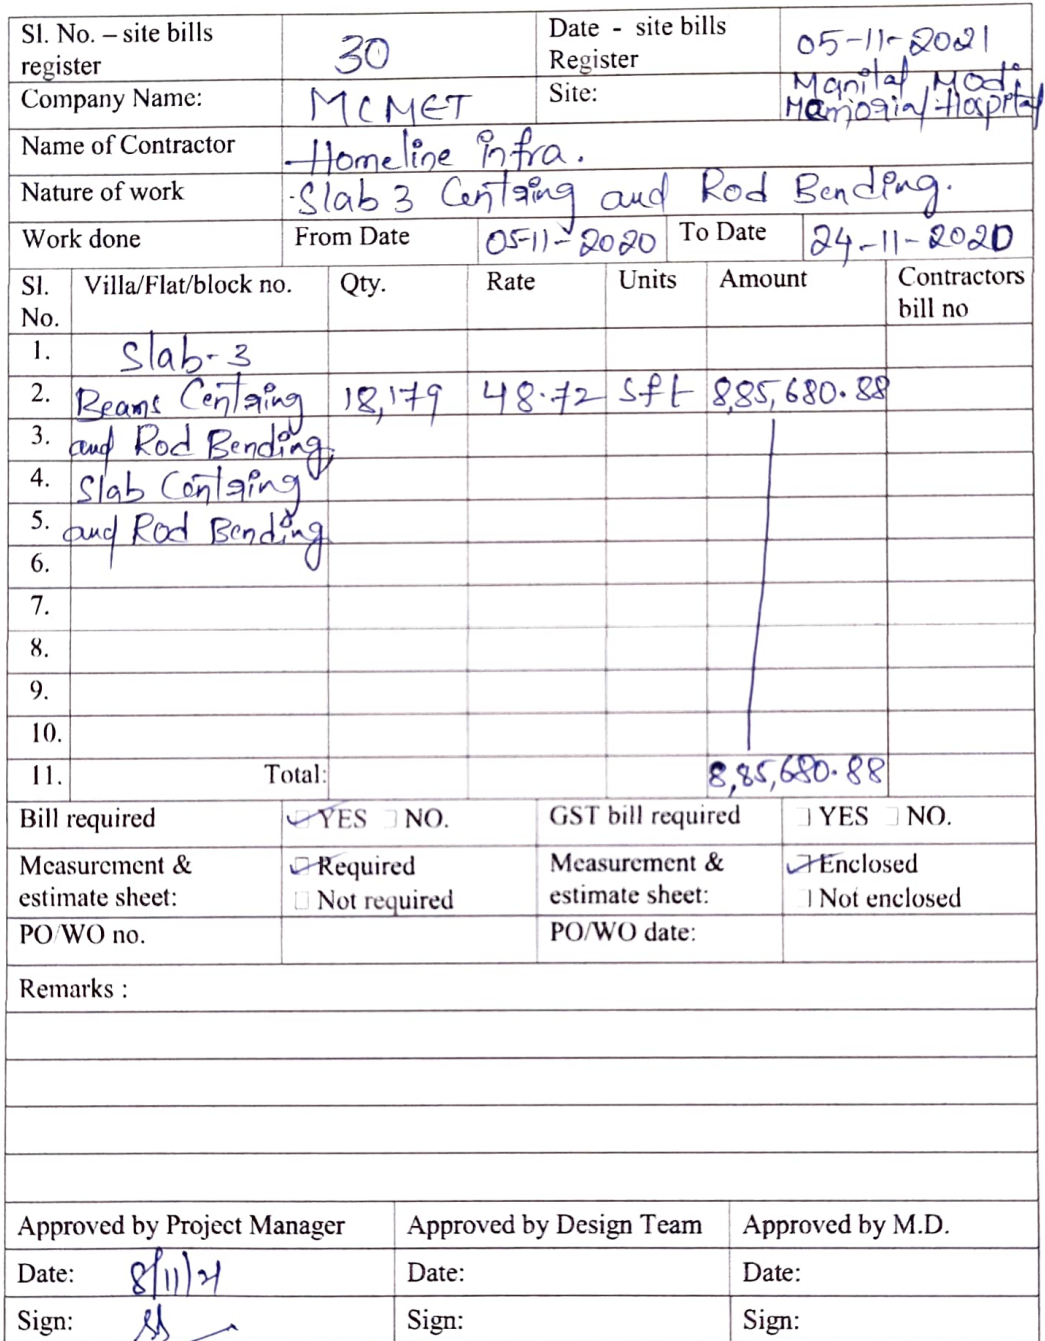 Sl. No. – site bills register 30 Date - site bills Register 05-11-2021
Company Name: MCMET Site: Manilal Modi Memorial Hospital
Name of Contractor Homeline infra.
Nature of work Slab 3 Centring and Rod Bending.
Work done From Date 05-11-2020 To Date 24-11-2020
Sl. No. Villa/Flat/block no. Qty. Rate Units Amount Contractors bill no
1. Slab-3
2. Beams Centring 18,179 48.72 sft 8,85,680.88
3. and Rod Bending,
4. Slab Centring
5. and Rod Bending
6.
7.
8.
9.
10.
11. Total: 8,85,680.88
Bill required YES NO. GST bill required YES NO.
Measurement & estimate sheet: Required Not required Measurement & estimate sheet: Enclosed Not enclosed
PO/WO no. PO/WO date:
Remarks :
Approved by Project Manager Approved by Design Team Approved by M.D.
Date: 8/11/21 Date: Date:
Sign: Sign: Sign: